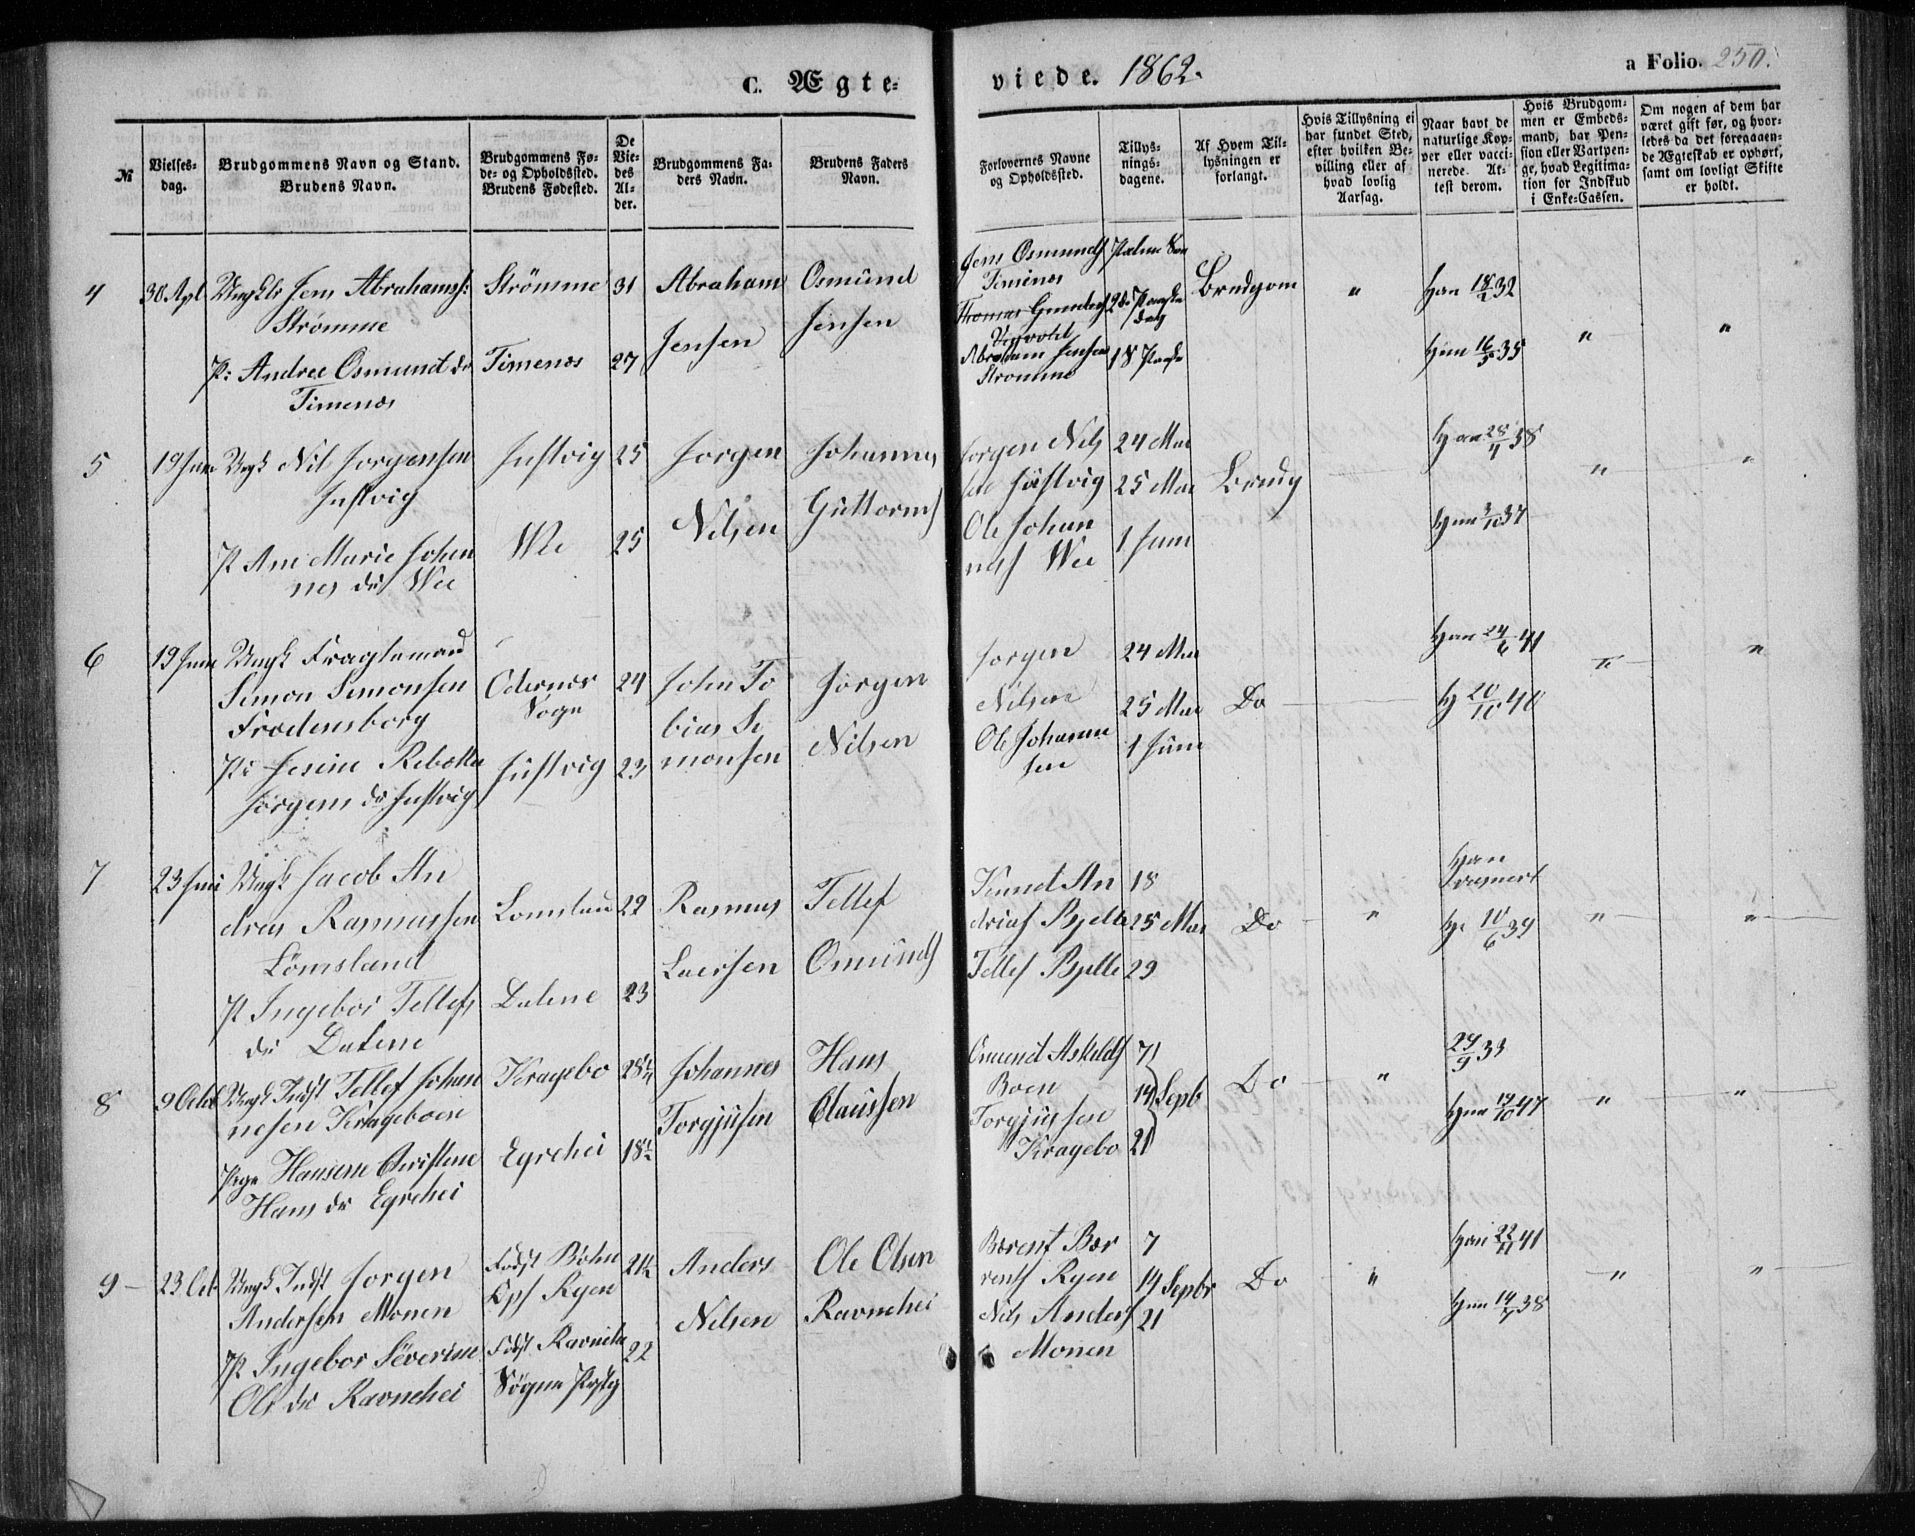 C. Ægte-
viede. 1862.
a Folio. 250.
№
Vielses-
dag.
Brudgommens Navn og Stand.
Brudens Navn.
Brudgommens Fø-
de- og Opholdssted.
Brudens Fødested.
De
Vie-
des
Al-
der.
Brudgommens Fa-
ders Navn.
Brudens Faders
Navn.
Forlovernes Navne
og Opholdssted.
Tillys-
nings-
dagene.
Af Hvem Til-
lysningen er
forlangt.
Hvis Tillysning ei
har fundet Sted,
efter hvilken Be-
villing eller af
hvad lovlig
Aarsag.
Naar havt de
naturlige Kop-
per eller vacci-
nerede. At-
test derom.
Hvis Brudgom-
men er Embeds-
mand, har Pen-
sion eller Vartpen-
ge, hvad Legitima-
tion for Indskud
i Enke-Cassen.
Om nogen af dem har
været gift før, og hvor-
ledes da det foregaaen-
de Ægteskab er ophørt,
samt om lovligt Skifte
er holdt.
4
30 Apl
Jens Abrahams:
Strømme
P: Andrea Osmund dr
Timenes
Strömme
Timenes
31
27
Abraham
Jensen
Osmund
Jensen
Jens Osmunds
Timenes
Abraham Jensen
Strömme
Brudgom
"
Han 18/2 32
Hun 16/5 35
"
"
5
19 Juni
Ungk Nil Jorgensen
Justvig
P Ane Marie Johan
nes dr Wee
Justvig
Wee
25
25
Jorgen
Nilsen
Johannes
Guttorms
Jorgen Nils
sen Justvig
Ole Johan
nes Wee
24 Mai
25 Mai
1 Juni
Brudg
Han 28/4 38
Hun 3/10 37
"
"
6
19 Juni
Ungk Fragtemand
Simon Simonsen
Frodensborg
P: Jesine Rebekka
Jörgens dr Justvig
Odernes
Sogn
Justvig
24
23
John To
bias Si
monsen
Jörgen
Nilsen
Jorgen
Nilsen
Ole Johanne
sen
24 Mai
25 Mai
1 Juni
Do
Han 24/6 41
H 20/10 40
"
"
7
23 Juni
Ungk Jacob An
dreas Rasmussen
Lömsland
P Ingebor Tellefs
dr Dalene
Lomsland
Dalene
22
23
Rasmus
Larsen
Tellef
Omunds
Knud An
dreas Bjelle
Tellef Bjelle
18
25 Mai
29
Do
"
Han
H: 10/6 39
"
"
8
9 Octob
Ungk Indst Tellef Johan
nesen Krageboen
Pige Hansine Christene
Hans dr Egrehei
Kragebo
Egrehei
28 1/4
18 1/2
Johannes
Torgjusen
Hans
Claussen
Omund Askelds
Boen
Torgjussen
Kragebo
7
14 Sepb
21
Do
"
29/9 33
Hun 19/10 47
"
"
9
23 Oct
Ungk Indst Jorgen
Andersen Monen
P Ingebor Severine
Ols dr Ravnehei
Födt Böhn
Ops Ryen
Födt Ravnehei
Sögne Pstg
21 1/2
22
Anders
Nilsen
Ole Olsen
Ravnehei
Bærent Bær
rents Ryen
Nils Anders
Monen
7
14 Sepbr
21
Do
"
Han 22/11 41
Hun 14/7 38
"
"